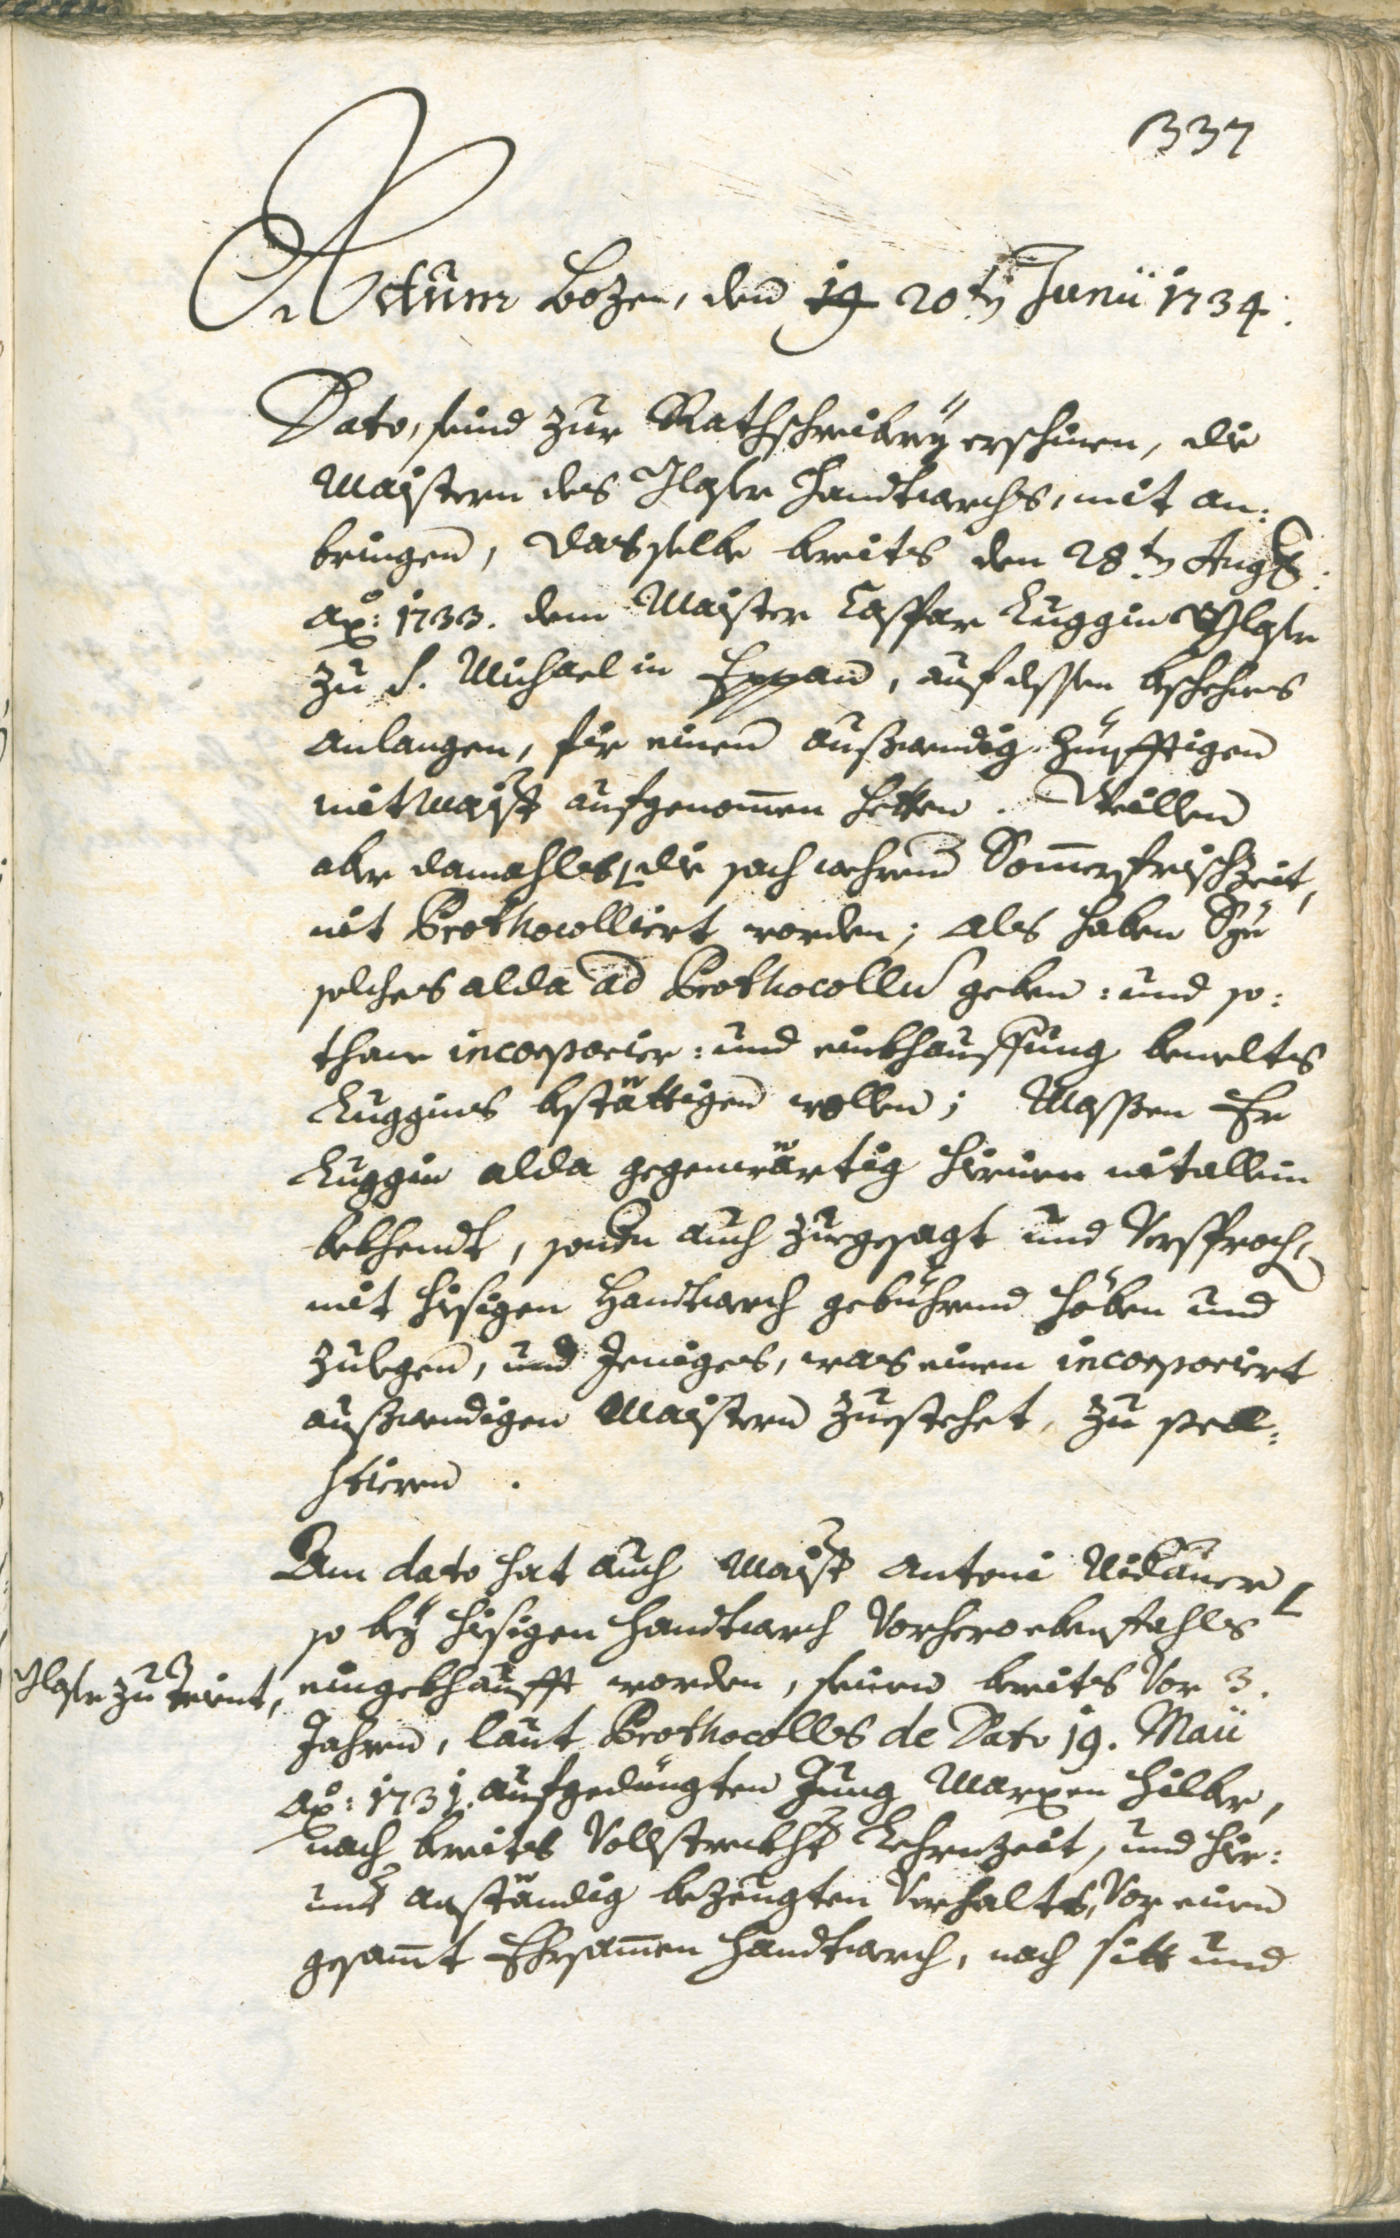 337
Actum Bozen, den 19 20tn Junii 1734.
Dato, seind zur Rathschreiberÿ erschinen, die
Maistern des Glaser Handtwerchs, mit an:
bringen, das selbe bereits den 28tn Aug:
ao: 1733. dem Maister Caspar Luggin Glaser
zu S. Michael in Eppan, auf dessen beschehens
anlangen, fir einen außwendig zünfftigen
mit Maistr aufgenomen hetten. Weillen
aber damahls, die sach wehrend Somerfrischzeit,
nit Prothocolliert worden; als haben Sye
solches alda ad Prothocollu geben: und so:
thane incorporier: und einkhauffung bemeltes
Luggins bestättigen wollen; Massen Er
Luggin alda gegenwärtig hieruen nit allein
bekhendt, sondern auch zuegesagt und versprochen
mit hisigen Handtwerch gebührend heben und
zulegen, und Jeniges, was einen incorporiert
außwendigen Maistern zuestehet, zu prae:
stieren.
Am dato hat auch Maistr Antoni Nidauer
so beÿ hisigen Handtwerch vorhero ebenfahls
Glaser zu Trient,
eingekhaufft worden, seinen bereits vor 3.
Jahren, laut Prothocolls de Dato 19. Maii
ao: 1731. aufgedungten Jung Marxen Hilber,
nach bereits vollstreckhter Lehrnzeit, und hie:
unter anständig bezeugten Verhalts, vor einen
gesamt Ehrsamen Handtwerch, nach sitt und